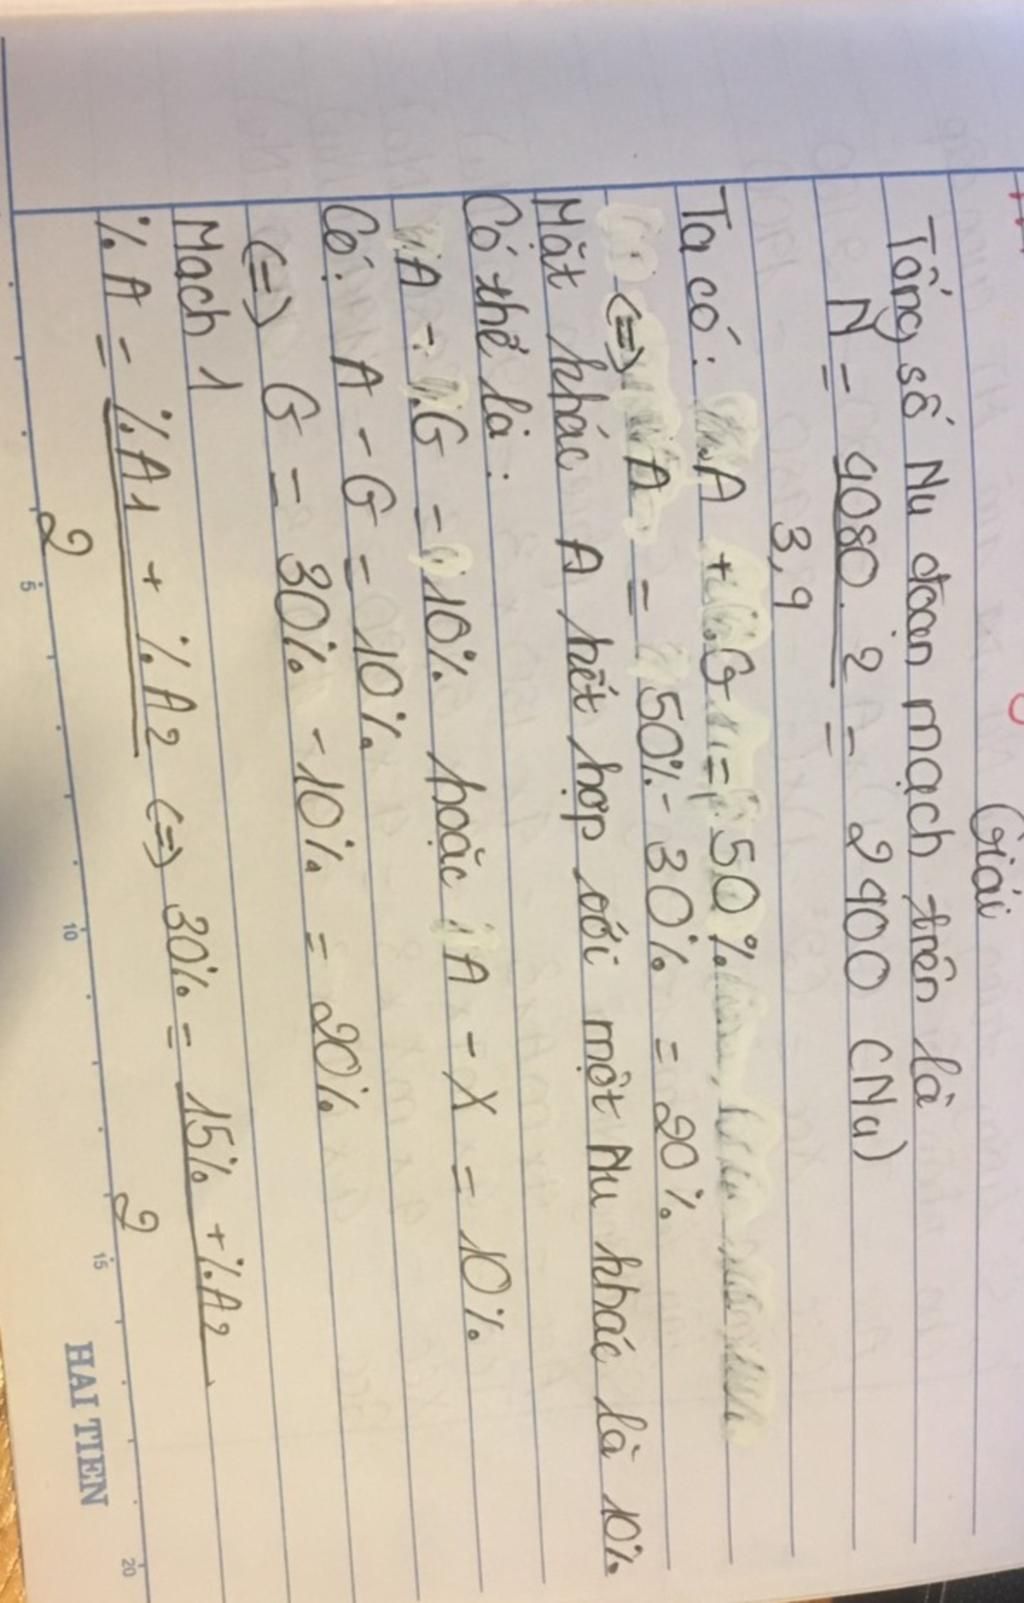 Giải
Tổng số Nu đoạn mạch trên là
N = 4080.2 = 2400 (Nu)
3,4
Ta có: A + G = 50%
<=> A = 50% - 30% = 20%
Mặt khác A hết hợp với một Nu khác là 10%
Có thể là:
A - G = 10% hoặc A - X = 10%
Có: A - G = 10%
<=> G = 30% - 10% = 20%
Mạch 1
%A = %A1 + %A2 <=> 30% = 15% + %A2
2 2
5 10 15 20
HAI TIEN